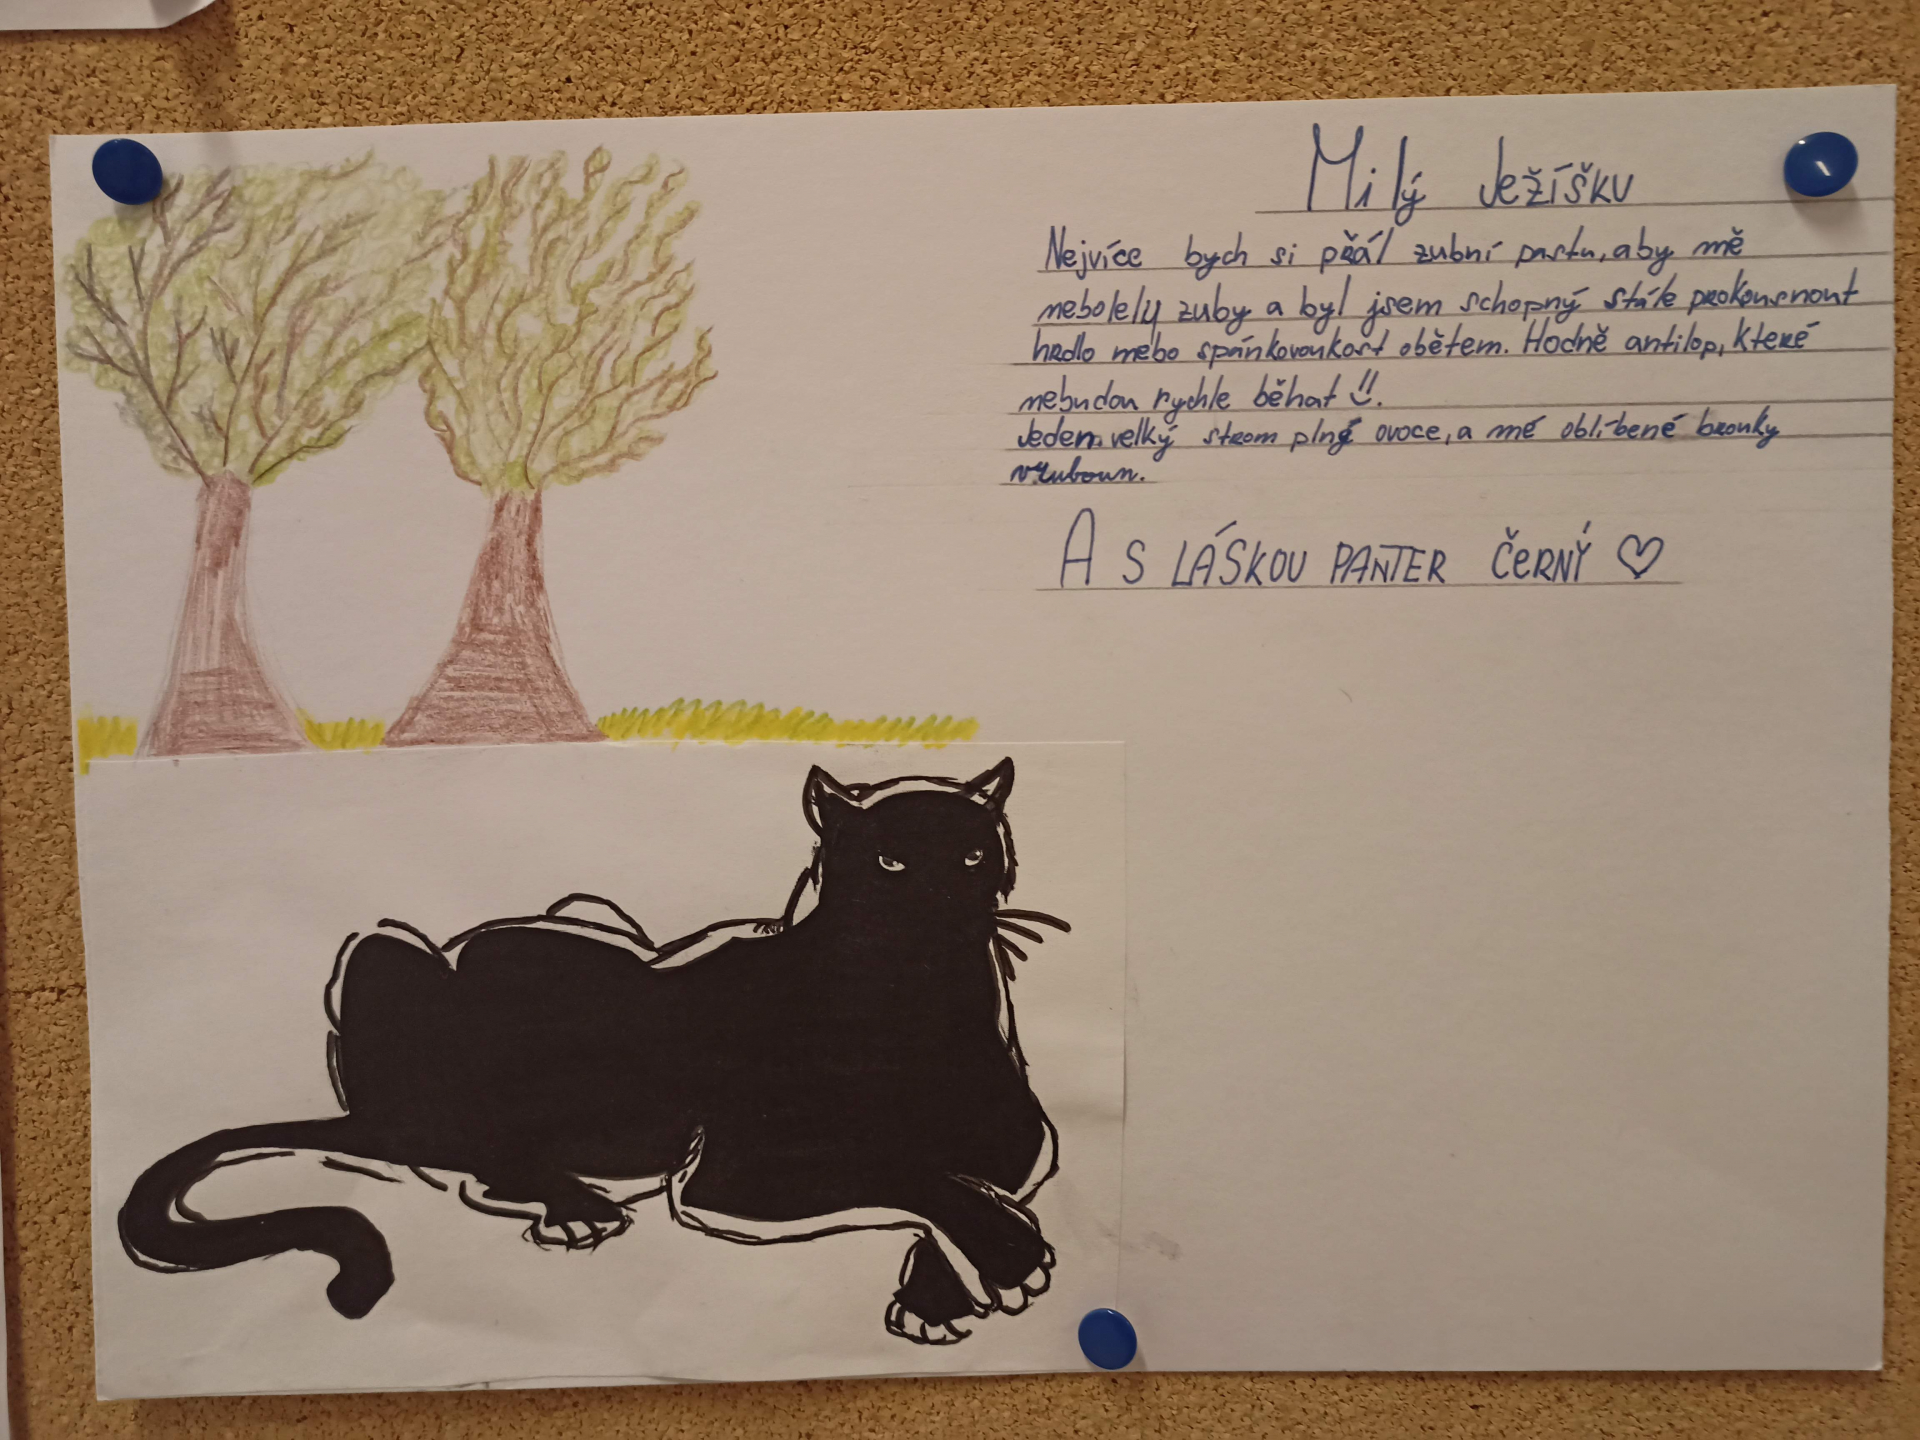 Milý Ježíšku
Nejvíce bych si přál zubní pastu, aby mě
nebolely zuby a byl jsem schopný stále prokousnout
hrdlo nebo spánkovou kost obětem. Hodně antilop, které
nebudou rychle běhat
Jeden velký strom plný ovoce, a mé oblíbené brouky
A S LÁSKOU PANTER ČERNÝ ♡